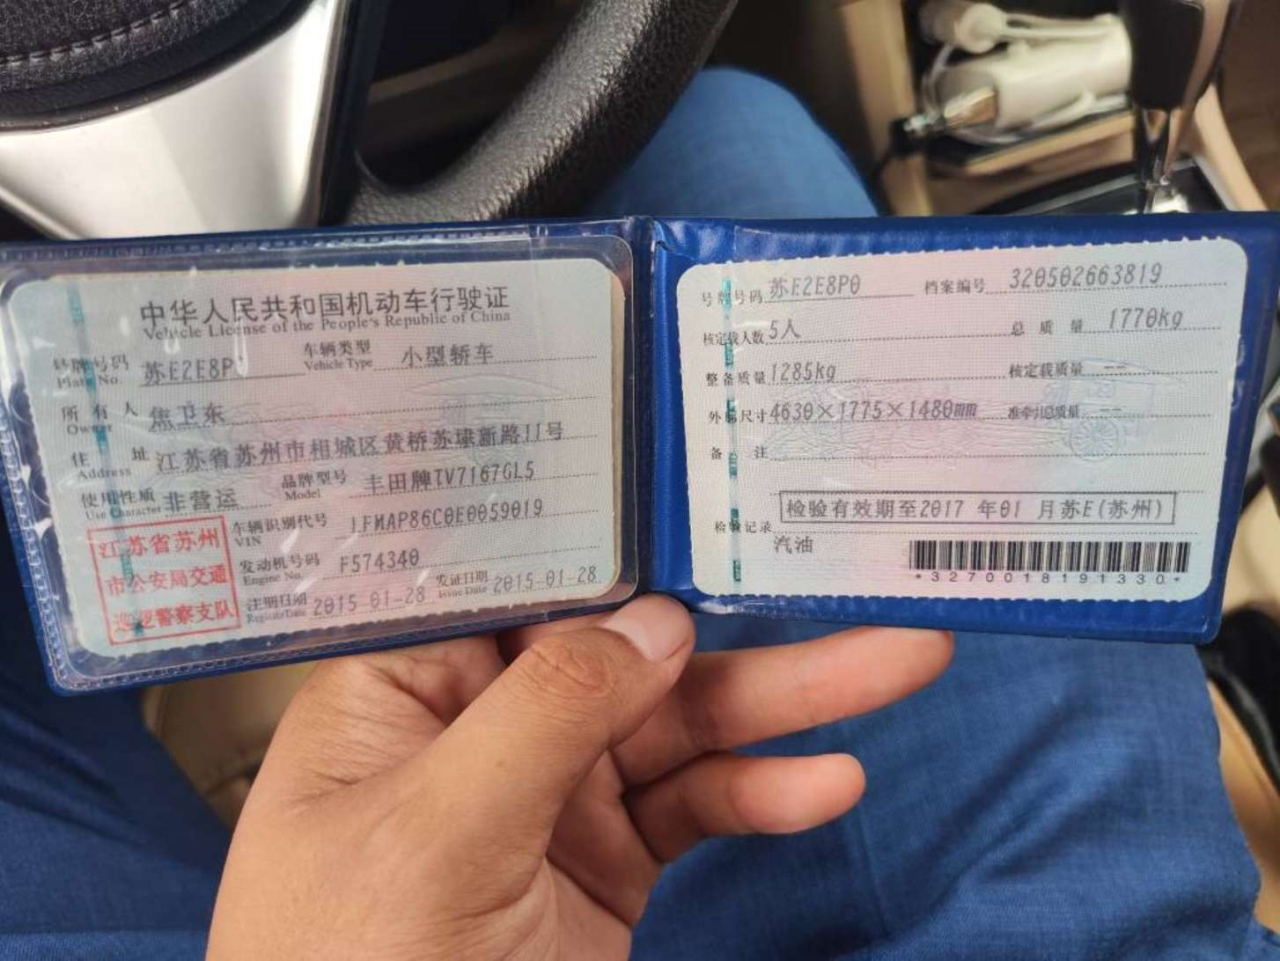 中华人民共和国机动车行驶证
Vehicle License of the People's Republic of China
号牌号码 苏E2E8P 车辆类型 小型轿车
Plate No. Vehicle Type
所有人 焦卫东
Owner
住址 江苏省苏州市相城区黄桥苏埭新路11号
Address
使用性质 非营运 品牌型号 丰田牌TV7167GL5
Use Character Model
车辆识别代号 LFMAP86C0E0059019
VIN
发动机号码 F574340
Engine No.
注册日期 2015-01-28 发证日期 2015-01-28
Register Date Issue Date
江苏省苏州
市公安局交通
巡逻警察支队
号牌号码 苏E2E8P0 档案编号 320502663819
核定载人数 5人 总质量 1770kg
整备质量 1285kg 核定载质量 --
外廓尺寸 4630×1775×1480mm 准牵引总质量 --
备注
检验有效期至2017 年01 月苏E(苏州)
检验记录
汽油
*3270018191330*